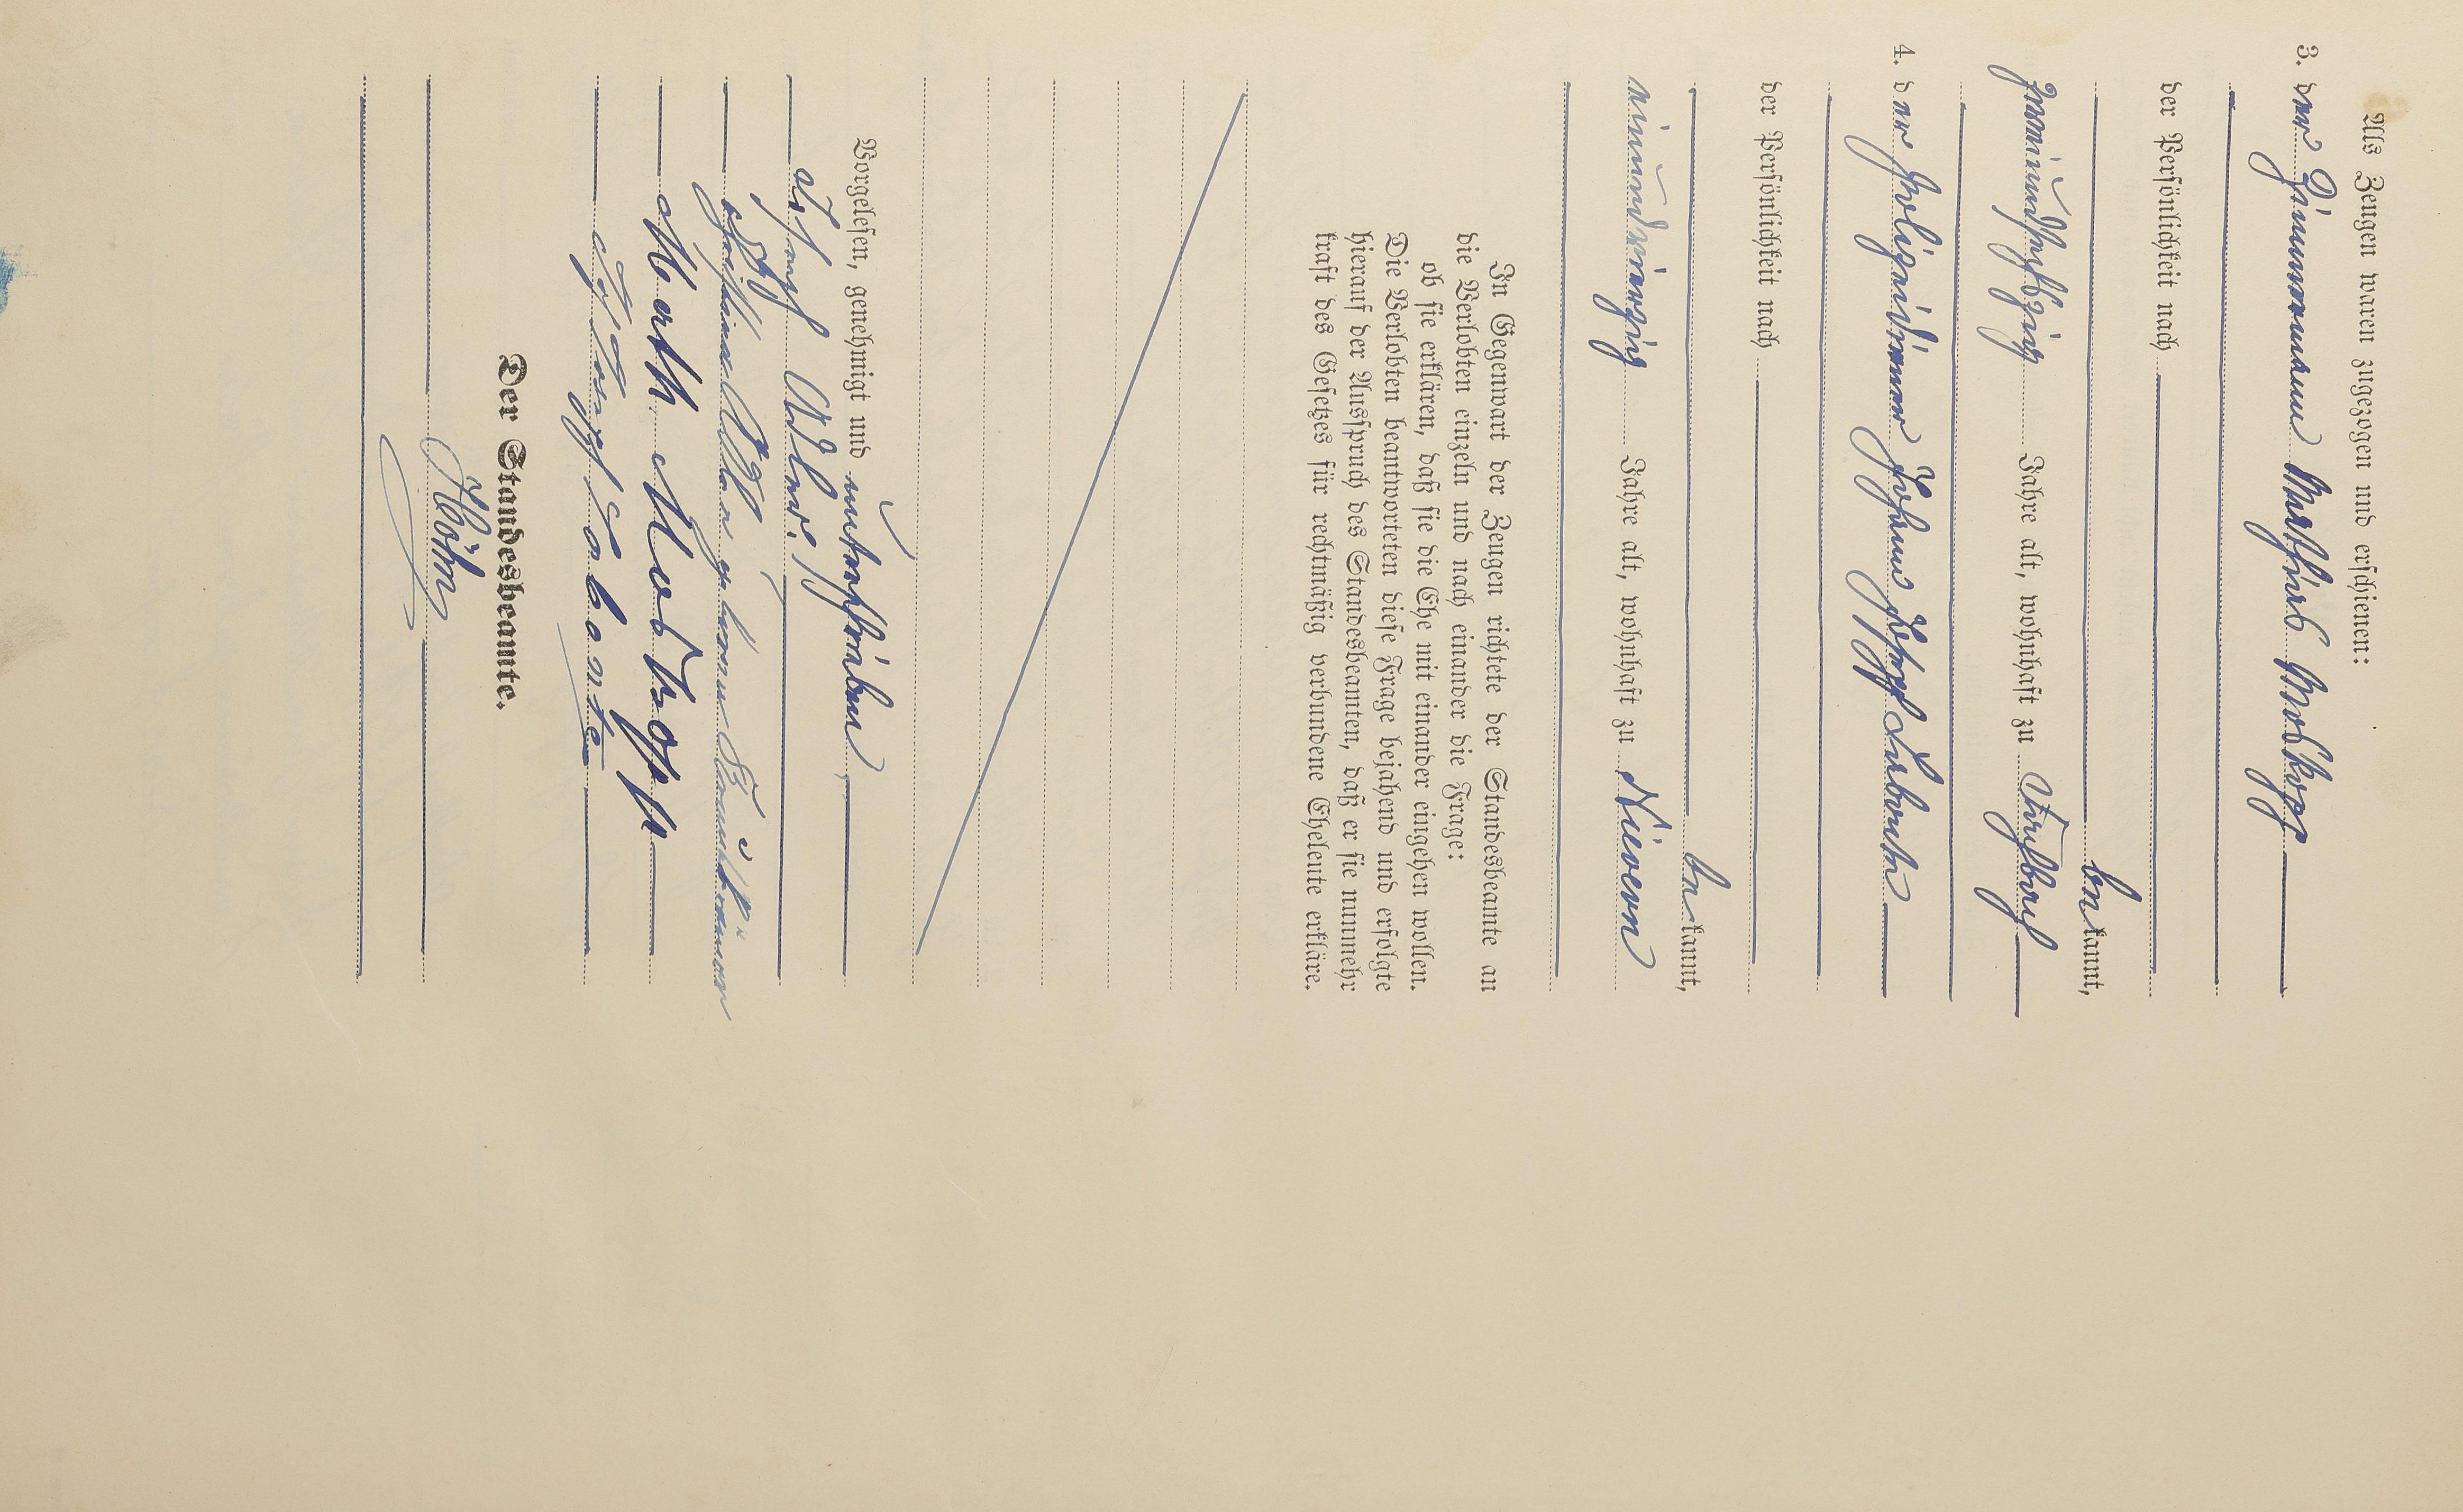 Als Zeugen waren zugezogen und erschienen:
3. der Zimmermann Mathias Modkopp
der Persönlichkeit nach
bekannt,
zweiundsechzig Jahre alt, wohnhaft zu Fachbach
4. der Polizeidiener Johann Josef Labonte
der Persönlichkeit nach
bekannt,
einundvierzig Jahre alt, wohnhaft zu Nievern
In Gegenwart der Zeugen richtete der Standesbeamte an
die Verlobten einzeln und nach einander die Frage:
ob sie erklären, daß sie die Ehe mit einander eingehen wollen.
Die Verlobten beantworteten diese Frage bejahend und erfolgte
hierauf der Ausspruch des Standesbeamten, daß er sie nunmehr
kraft des Gesetzes für rechtmäßig verbundene Eheleute erkläre.
Vorgelesen, genehmigt und unterschrieben
Josef Adler.
Adler geborene
Math Modkopp
Joh Josef Labonte
Der Standesbeamte.
Höhn